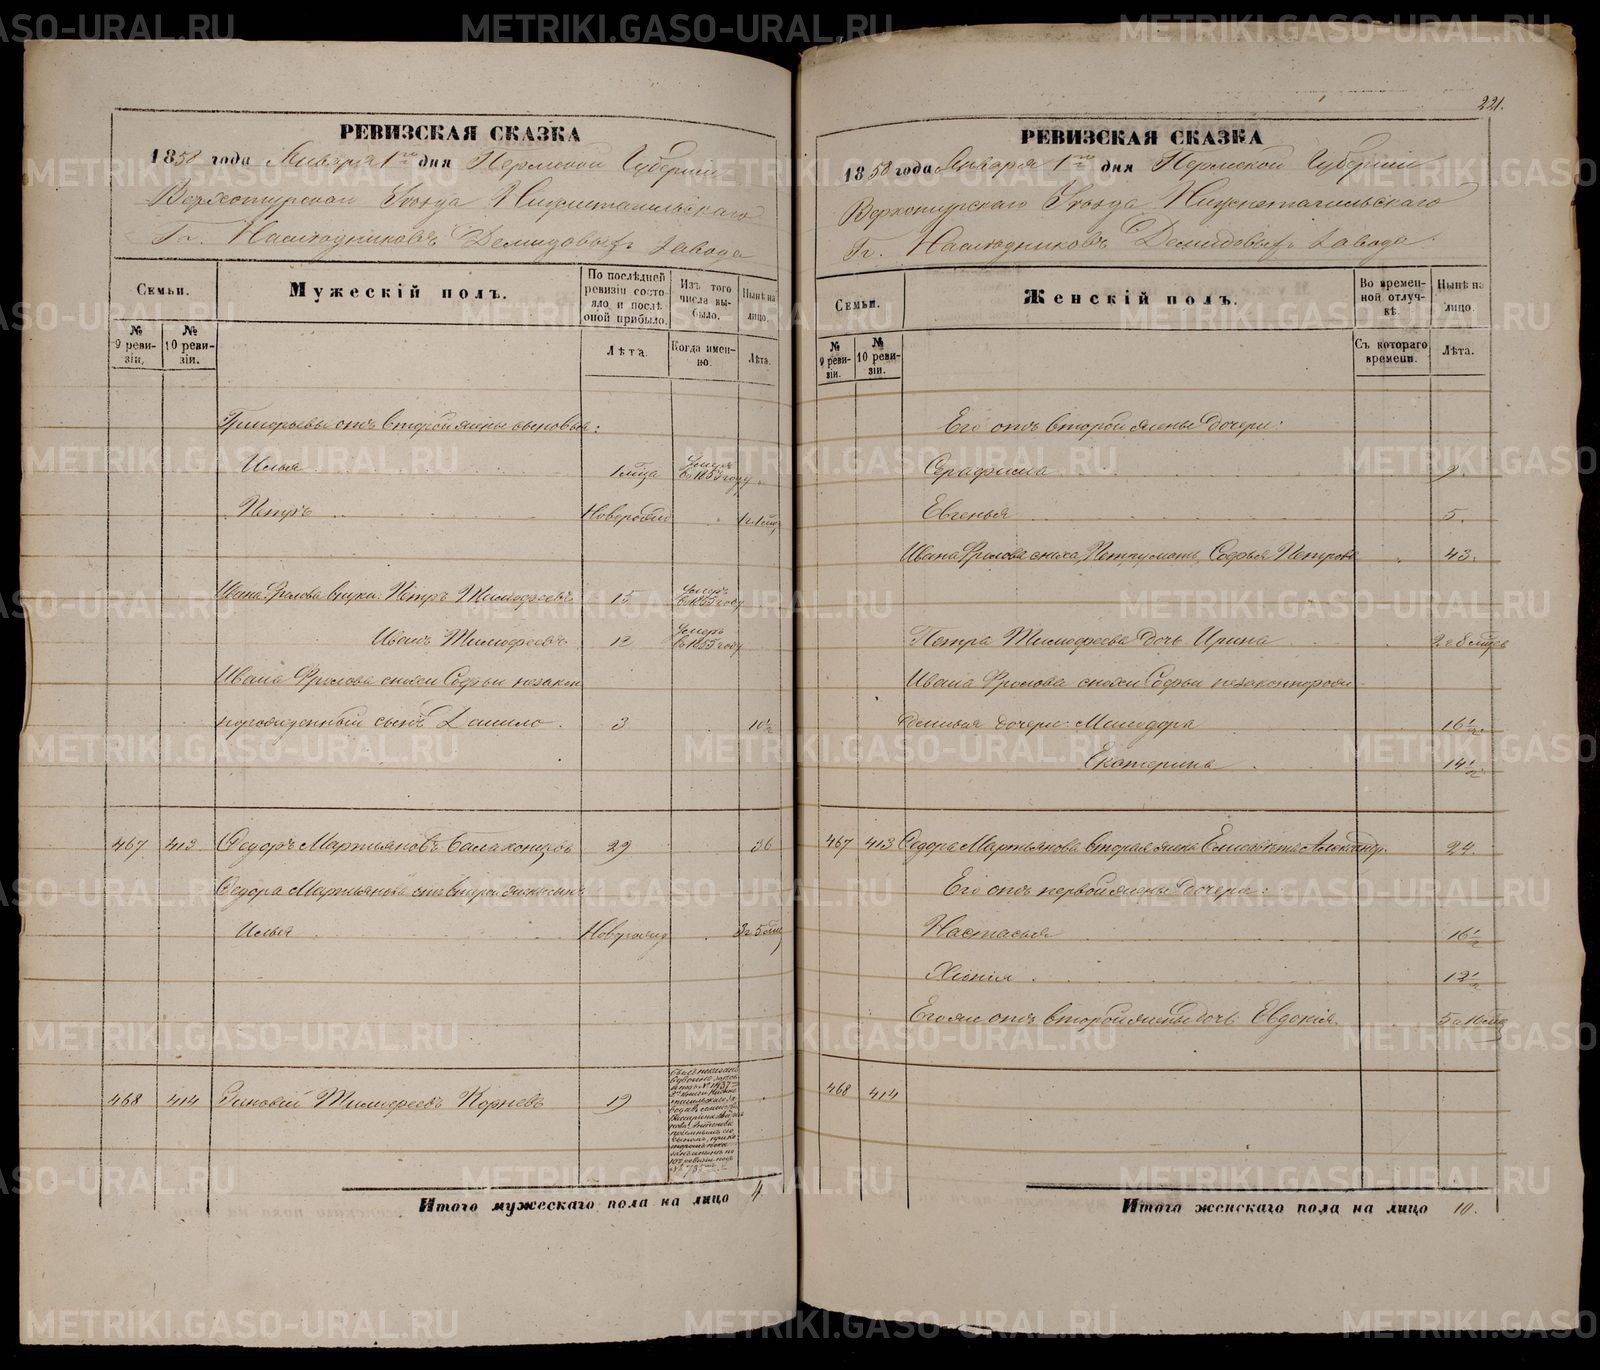 РЕВИЗСКАЯ СКАЗКА
1858 года Января 1го дня Пермской Губернии
Верхотурскаго Уѣзда Нижнетагильскаго
Гг. Наслѣдниковъ Демидовыхъ Завода
Семьи.
№ 9 ревизіи.
№ 10 ревизіи.
Мужескій полъ.
По послѣдней ревизіи состояло и послѣ оной прибыло.
Лѣта.
Изъ того числа выбыло.
Когда именно.
Нынѣ на лицо.
Лѣта.
Григорьевы отъ второй жены сыновья:
Илья 1 мѣсяца Умеръ въ 1855 году
Петръ Новорожд 1 г. 1 мѣс
Ивана Фролова внуки: Петръ Тимофеевъ 15 Умеръ въ 1855 году
Иванъ Тимофеевъ 12 Умеръ въ 1855 году
Ивана Фролова снохи Софьи незакон
норожденный сынъ Данило 3 10½
467 413 Федоръ Мартьяновъ Балакинцовъ 29 36
Федора Мартьянова отъ второй жены сынъ
Илья Новорожд 3 г. 5 мѣс
468 414 Зиновій Тимофеевъ Корневъ 19
Итого мужескаго пола на лицо 4
221.
РЕВИЗСКАЯ СКАЗКА
1858 года Января 1го дня Пермской Губерніи
Верхотурскаго Уѣзда Нижнетагильскаго
Гг. Наслѣдниковъ Демидовыхъ Завода.
Семьи.
№ 9 ревизіи.
№ 10 ревизіи.
Женскій полъ.
Во временной отлучкѣ.
Съ котораго времени.
Нынѣ на лицо.
Лѣта.
Его отъ второй жены дочери:
Серафима 9.
Евгенья 5.
Ивана Фролова сноха, Петру мать, Софья Петрова 43.
Петра Тимофеева дочь Ирина 2 г 8 мѣс
Ивана Фролова снохи Софьи незаконнорож
денныя дочери: Минодора 16½
Екатерина 14½
467 413 Федора Мартьянова вторая жена Елисавета Александр. 24.
Его отъ первой жены дочери:
Настасья 16½
Хіонія 12½
Его же отъ второй жены дочь Евдокія 5 г 11 мѣс
468 414
Итого женскаго пола на лицо 10.
METRIKI.GASO-URAL.RU